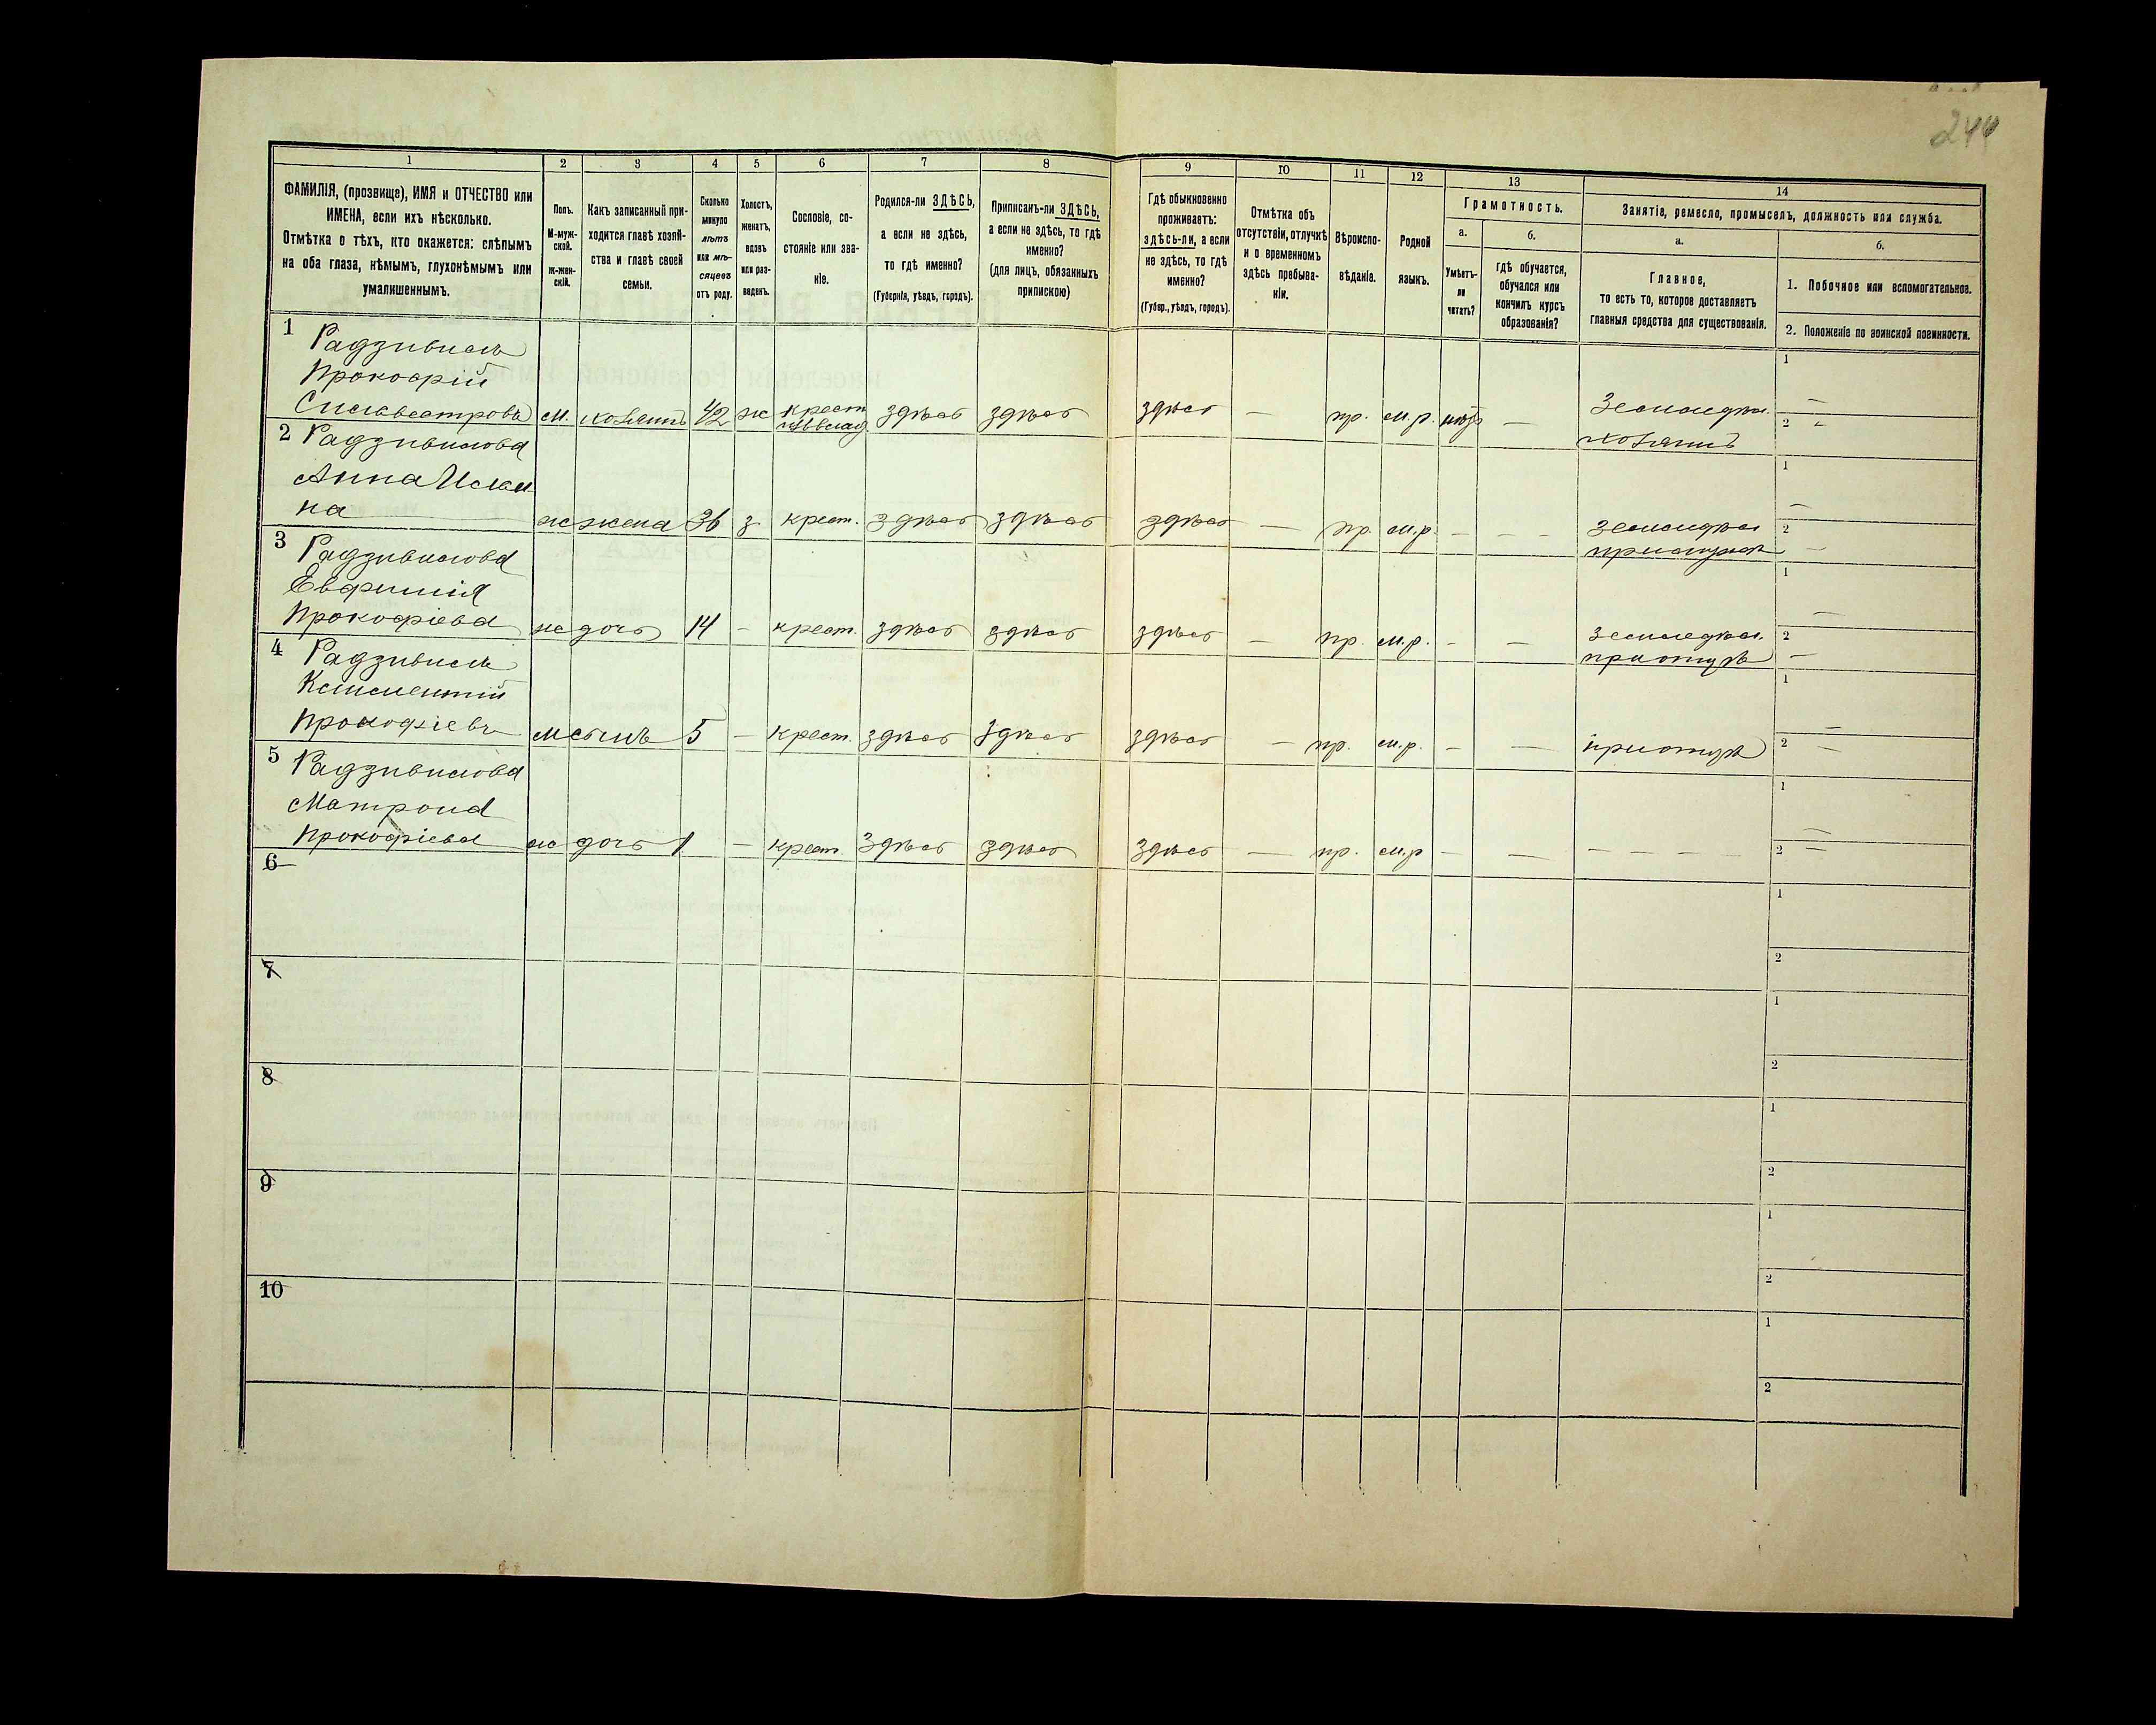 244
1 2 3 4 5 6 7 8 9 10 11 12 13 14
ФАМИЛІЯ, (прозвище), ИМЯ и ОТЧЕСТВО или
ИМЕНА, если ихъ нѣсколько.
Отмѣтка о тѣхъ, кто окажется: слѣпымъ
на оба глаза, нѣмымъ, глухонѣмымъ или
умалишеннымъ.
Полъ.
М-муж-
ской.
ж-жен-
скій.
Какъ записанный при-
ходится главѣ хозяй-
ства и главѣ своей
семьи.
Сколько
минуло
лѣтъ
или мѣ-
сяцевъ
отъ роду.
Холостъ,
женатъ,
вдовъ
или раз-
веденъ.
Сословіе, со-
стояніе или зва-
ніе.
Родился-ли ЗДѢСЬ,
а если не здѣсь,
то гдѣ именно?
(Губернія, уѣздъ, городъ).
Приписанъ-ли ЗДѢСЬ,
а если не здѣсь, то гдѣ
именно?
(для лицъ, обязанныхъ
припискою)
Гдѣ обыкновенно
проживаетъ:
здѣсь-ли, а если
не здѣсь, то гдѣ
именно?
(Губер., уѣздъ, городъ).
Отмѣтка объ
отсутствіи, отлучкѣ
и о временномъ
здѣсь пребыва-
ніи.
Вѣроиспо-
вѣданіе.
Родной
языкъ.
Грамотность.
а.
Умѣетъ-
ли
читать?
б.
гдѣ обучается,
обучался или
кончилъ курсъ
образованія?
Занятіе, ремесло, промыселъ, должность или служба.
а.
Главное,
то есть то, которое доставляетъ
главныя средства для существованія.
б.
1. Побочное или вспомогательное.
2. Положеніе по воинской повинности.
1 Радзивилъ
Прокофій
Сильвестровъ м. хозяинъ 42 ж крест. здѣсь здѣсь здѣсь — пр. м.р. нѣтъ — Земледѣл.
хозяинъ
1 —
2 —
2 Радзивилова
Анна
на ж жена 36 з крест. здѣсь здѣсь здѣсь — пр. м.р. — — — земледѣл
1 —
2 —
3 Радзивилова
Евфимія
Прокофіева ж дочь 14 — крест. здѣсь здѣсь здѣсь — пр. м.р. — — земледѣл.
1 —
2 —
4 Радзивилъ
Климентій
Прокофіевъ м сынъ 5 — крест. здѣсь здѣсь здѣсь — пр. м.р. — —
1 —
2 —
5 Радзивилова
Матрона
Прокофіева ж дочь 1 — крест. здѣсь здѣсь здѣсь — пр. м.р — — — — — —
1 —
2 —
6
1
2
7
1
2
8
1
2
9
1
2
10
1
2